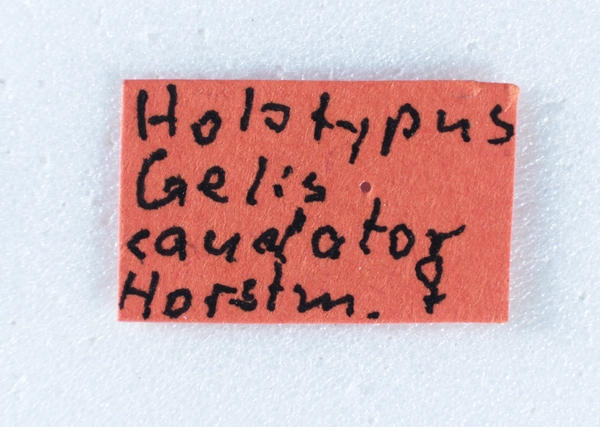 Holotypus
Gelis
caudator
Horstm. ♀